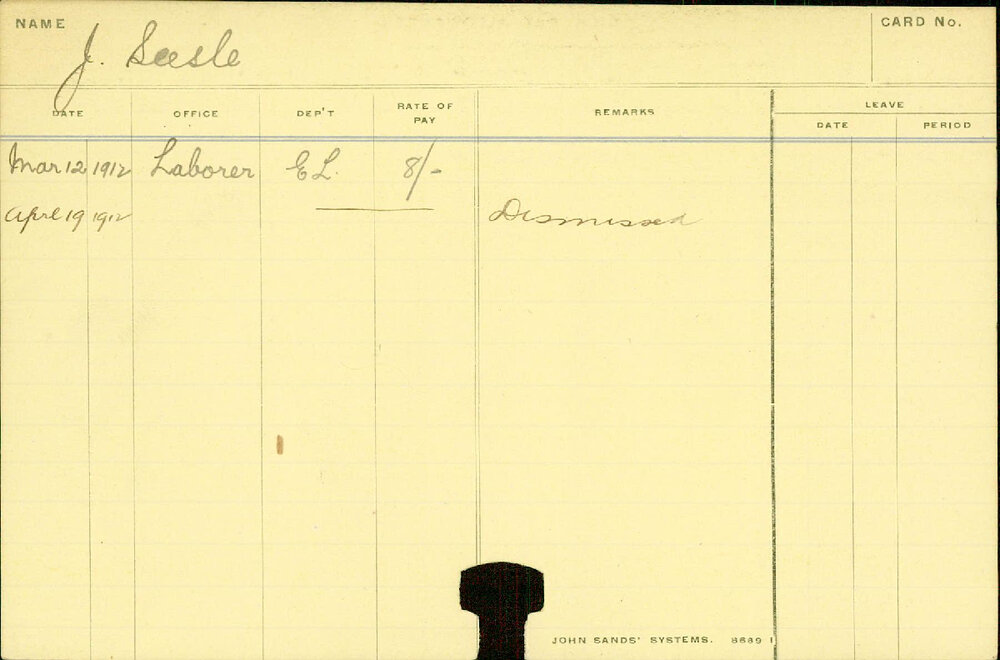 NAME
CARD No.
J. Seesle
DATE OFFICE DEP'T RATE OF PAY REMARKS LEAVE
DATE PERIOD
Mar 12 1912 Laborer E L. 8/-
April 19 1912 Dismissed
JOHN SANDS' SYSTEMS. 8689 1